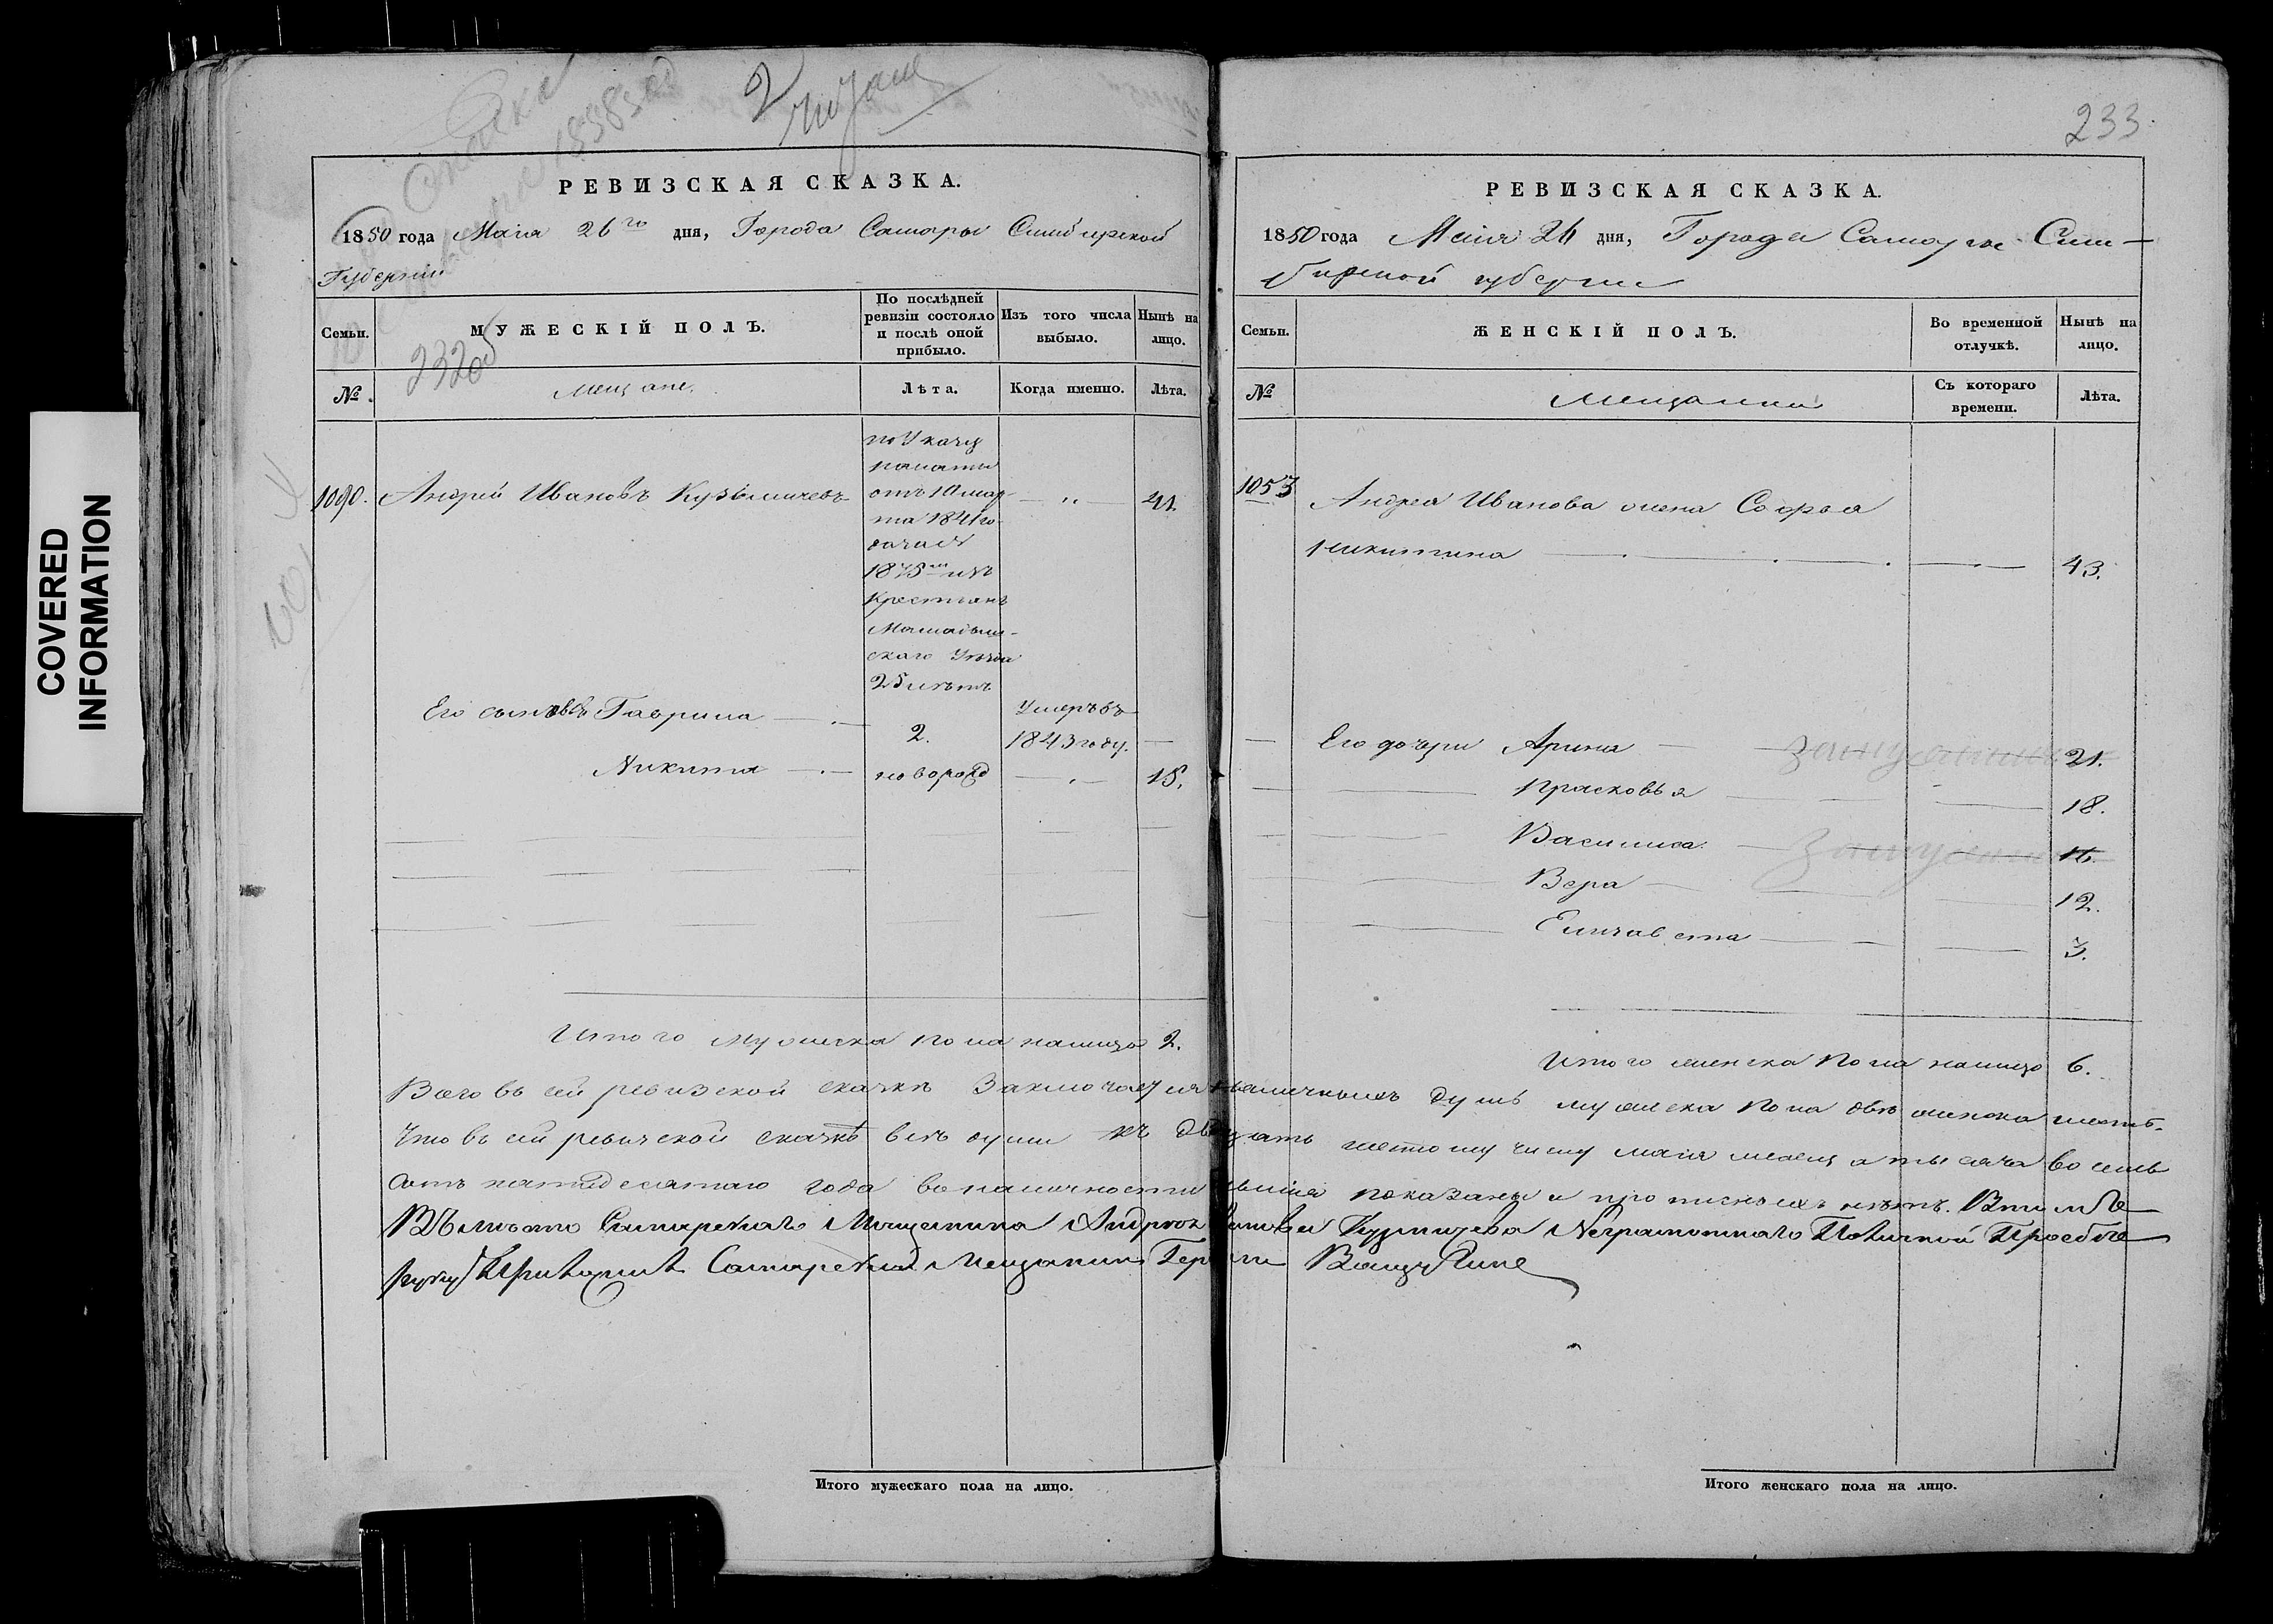 COVERED
INFORMATION
2
мещане
РЕВИЗСКАЯ СКАЗКА.
1850 года Маія 26го дня, Города Самары Симбирской
Губерніи
Семьи.
МУЖЕСКІЙ ПОЛЪ.
По послѣдней
ревизіи состояло
и послѣ оной
прибыло.
Изъ того числа
выбыло.
Нынѣ на
лицо.
232об
№
Мещане.
Лѣта.
Когда именно.
Лѣта.
1090. Андрей Ивановъ Кузьмичевъ 41.
по Указу
палаты
отъ 10 мар-
та 1841 го-
да за №
1875м изъ
Крестьянъ
скаго Уѣзда
25 лѣтъ
Его сыновья Гаврила 2. Умеръ въ
1843 году.
Никита новорожд 15.
Итого мужеска пола налицо 2.
233.
РЕВИЗСКАЯ СКАЗКА.
1850 года Маія 26 дня, Города Самары Сим-
бирской губерніи
Семьи.
ЖЕНСКІЙ ПОЛЪ.
Во временной
отлучкѣ.
Нынѣ на
лицо.
№
Мещанки
Съ котораго
времени.
Лѣта.
1053 Андрея Иванова жена Софья
Никитина 43.
Его дочери Арина замужемъ 21.
Прасковья 18.
Василиса замужемъ 16.
Вера 12.
Елизавета 3.
Итого женска пола налицо 6.
Всего въ сей ревизской сказкѣ заключается наличныхъ душъ мужска пола двѣ женска шесть.
Что въ сей ревизской сказкѣ всѣ души къ двадцать шестому числу маія месяца тысяча восемь
сотъ пятидесятаго года въ наличности показаны и прописныхъ нѣтъ. Въ томъ
Вмѣсто Самарскаго Мещанина Андрея Иванова Кузмичева Неграмотнаго По личной Просбѣ
руку Приложилъ Самарской Мещанинъ
Итого мужескаго пола на лицо.
Итого женскаго пола на лицо.